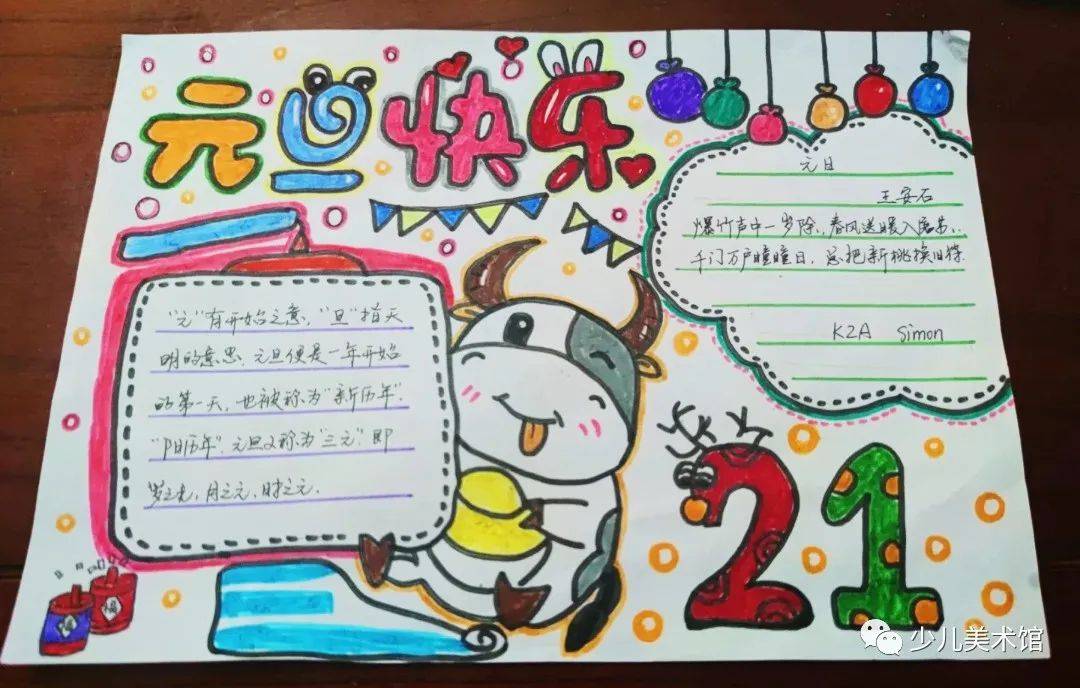 元旦快乐
元日
王安石
爆竹声中一岁除,春风送暖入屠苏.
千门万户瞳瞳日,总把新桃换旧符.
K2A Simon
"元"有开始之意,"旦"指天
明的意思.元旦便是一年开始
的第一天,也被称为"新历年".
"阳历年".元旦又称为"三元".即
岁之元,月之元,时之元.
21
少儿美术馆